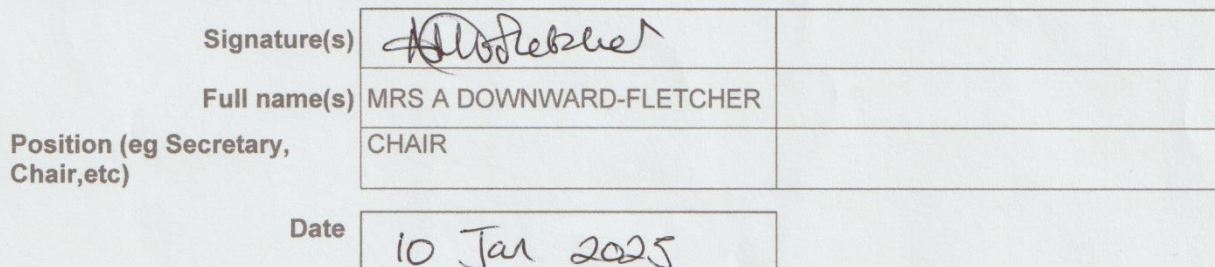 Signature(s)
Full name(s) MRS A DOWNWARD-FLETCHER
Position (eg Secretary, CHAIR
Chair,etc)
Date 10 Jan 2025